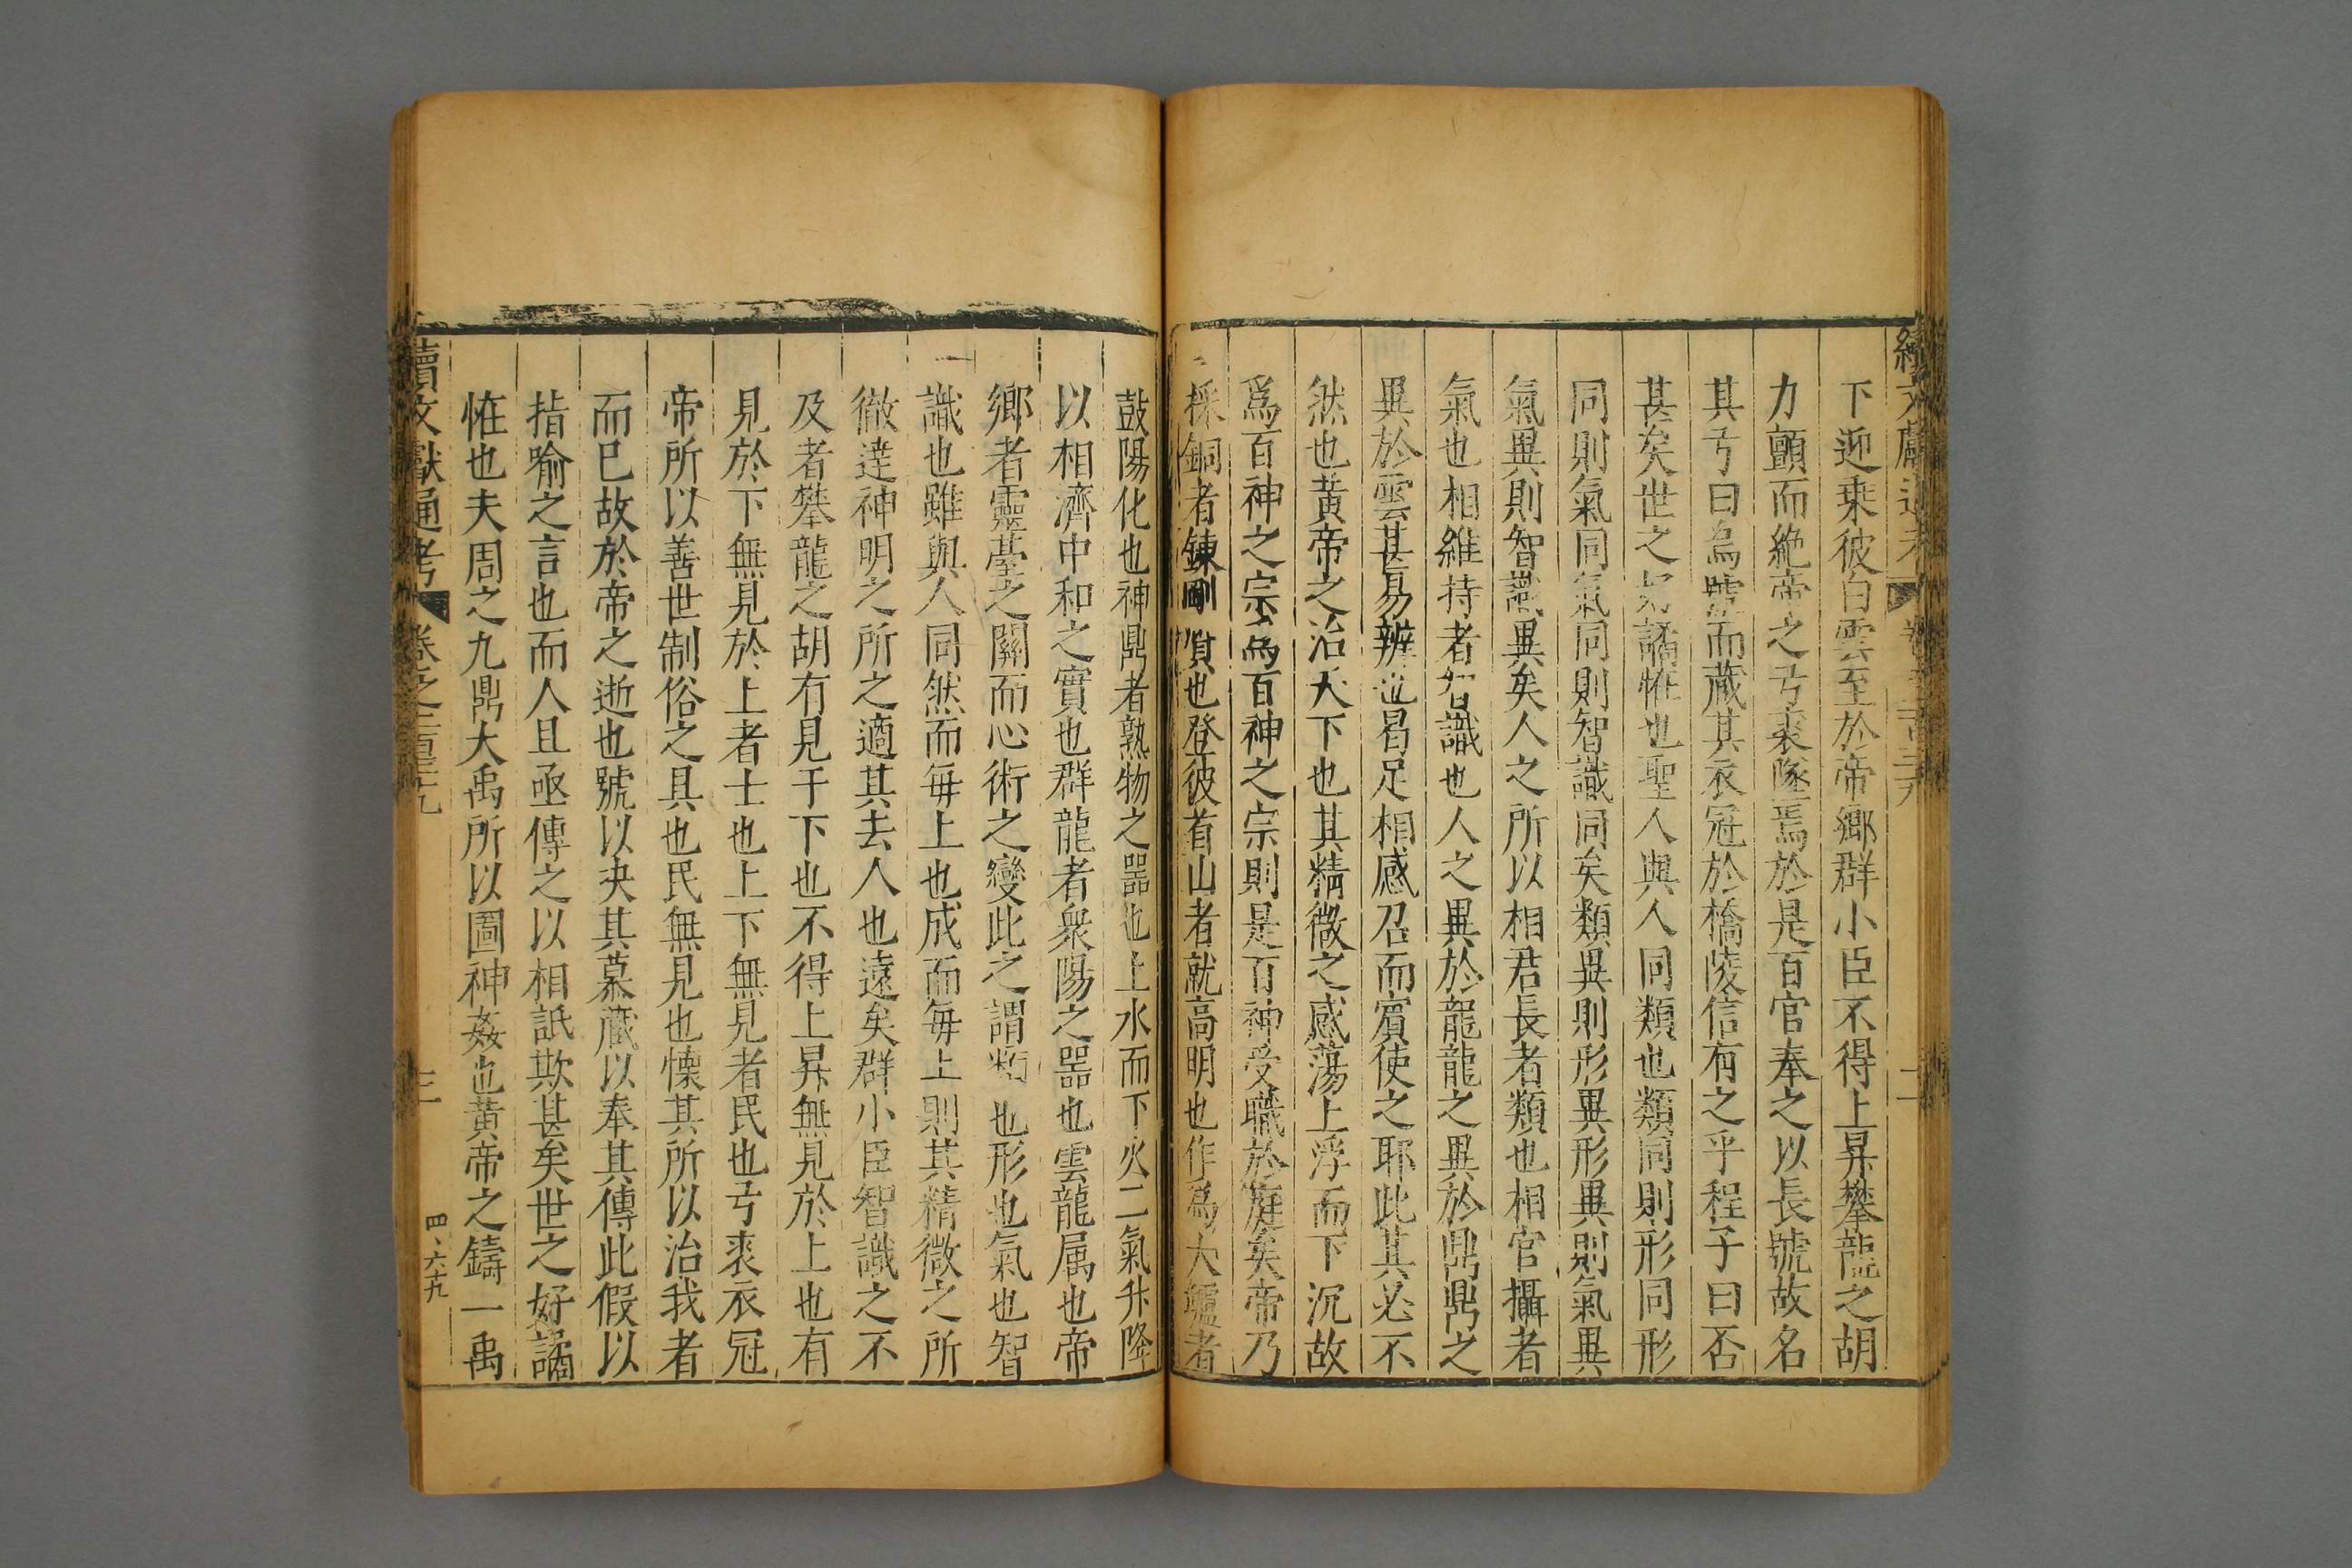 續文獻通考
二
下迎乘彼白雲至於帝鄉群小臣不得上昇攀龍之胡
力顫而絶帝之弓裘墜焉於是百官奉之以長號故名
其弓曰烏號而藏其衣冠於橋陵信有之乎程子曰否
甚矣世之好譎恠也聖人與人同類也類同則形同形
同則氣同氣同則智識同矣類異則形異形異則氣異
氣異則智識異矣人之所以相君長者類也相官攝者
氣也相維持者智識也人之異於龍龍之異於鼎鼎之
異於雲甚易辨也曷足相感召而賓使之耶此其必不
然也黄帝之治天下也其精微之感蕩上浮而下沉故
爲百神之宗爲百神之宗則是百神受職於庭矣帝乃
採銅者錬剛質也登彼首山者就高明也作爲大鑪者
鼓陽化也神鼎者熟物之噐也上水而下火二氣升降
以相濟中和之實也群龍者衆陽之噐也雲龍属也帝
鄉者靈臺之關而心術之變此之謂類也形也氣也智
識也雖與人同然而每上也成而每上則其精微之所
徹達神明之所之適其去人也遠矣群小臣智識之不
及者攀龍之胡有見于下也不得上昇無見於上也有
見於下無見於上者士也上下無見者民也弓裘衣冠
帝所以善世制俗之具也民無見也懐其所以治我者
而已故於帝之逝也號以决其慕藏以奉其傳此假以
指喻之言也而人且亟傳之以相詆欺甚矣世之好譎
恠也夫周之九鼎大禹所以圖神姦也黄帝之鑄一禹
續文獻通考
卷之二百三十九
三
四、六十九